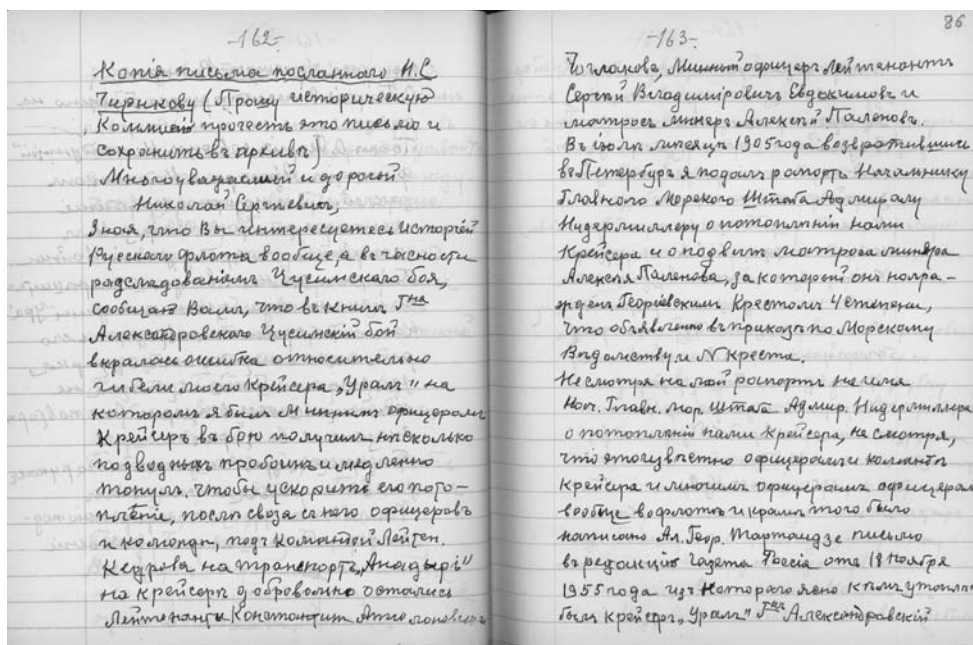 -162-
Копія письма посланнаго Н.С
Чирикову (Прошу историческую
Коммисію прочесть это письмо и
сохранить въ архивѣ)
Многоуважаемый и дорогой
Николай Сергѣевичъ,
Зная, что Вы интересуетесь исторіей
Русскаго флота вообще, а въ часности
разследованіемъ Цусимскаго боя,
сообщаю Вамъ, что въ книгѣ Гна
Александровскаго Цусимскій бой
вкралась ошибка относительно
гибели моего крейсера „Уралъ" на
которомъ я былъ Миннымъ офицеромъ
Крейсеръ въ бою получилъ нѣсколько
подводныхъ пробоинъ и медленно
тонулъ, чтобы ускорить его пото-
пленіе, послѣ своза съ него офицеровъ
и команды, подъ командой Лейтен.
Кедрова на транспортъ „Анадырь"
на крейсерѣ добровольно остались
Лейтенанты Константинъ
86
-163-
Чоглокова, Минный офицеръ Лейтенантъ
Сергѣй Владиміровичъ Евдокимовъ и
матросъ минеръ Алексѣй Паленовъ.
Въ іюлѣ мѣсяцѣ 1905 года возвратившись
въ Петербургъ я подалъ рапортъ Начальнику
Главнаго Морского Штаба Адмиралу
Нидермиллеру о потопленіи нами
Крейсера и о подвигѣ матроса минера
Алексѣя Паленова, за который онъ награ-
жденъ Георгіевскимъ Крестомъ 4 степени,
что объявленно въ приказѣ по Морскому
Вѣдомству и N креста.
Несмотря на мой рапортъ на имя
Нач. Главн. мор. штаба Адмир. Нидермиллера
о потопленіи нами Крейсера, не смотря,
что это извѣстно офицерамъ и командѣ
крейсера и многимъ офицерамъ офицерамъ
вообще во флотѣ и кромѣ того было
написано Ал. Геор. письмо
въ редакцію газета Россія отъ 18 ноября
1955 года изъ котораго ясно кѣмъ утопленъ
былъ крейсеръ „Уралъ" Гнъ Александровскій